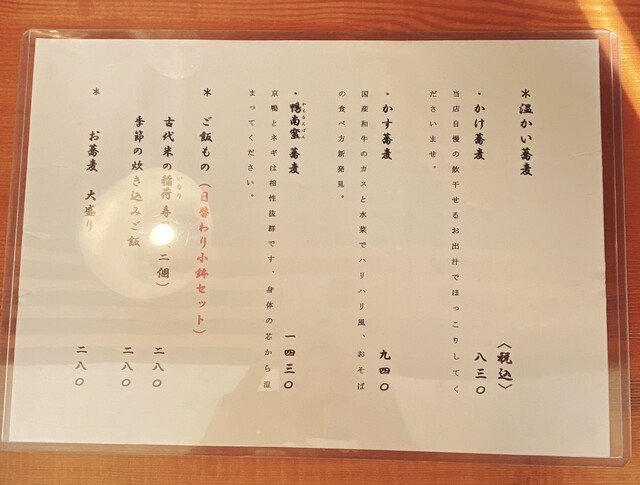 ＊温かい蕎麦
〈税込〉
・かけ蕎麦 八三〇
当店自慢の飲干せるお出汁でほっこりしてく
ださいませ。
・かす蕎麦 九四〇
国産和牛のカスと水菜でハリハリ風、おそば
の食べ方新発見。
・鴨南蛮蕎麦 一四三〇
京鴨とネギは相性抜群です、身体の芯から温
まってください。
＊ ご飯もの（日替わり小鉢セット）
古代米の稲荷寿 二個） 二八〇
季節の炊き込みご飯 二八〇
＊ お蕎麦 大盛り 二八〇